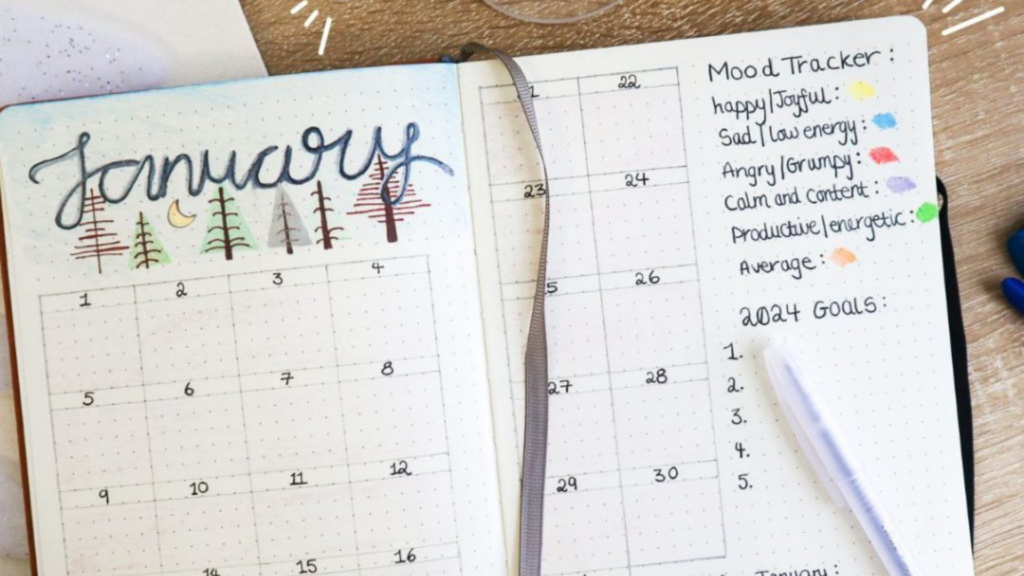 January
1 2 3 4
5 6 7 8
9 10 11 12
15 16
22
23 24
26
27 28
29 30
Mood Tracker:
happy/Joyful:
Sad/low energy:
Angry/Grumpy:
Calm and content:
Productive/energetic:
Average:
2024 GOALS:
1.
2.
3.
4.
5.
January: